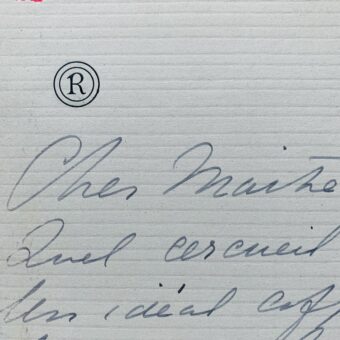 R
Cher Maître
Quel cercueil
Un idéal cof